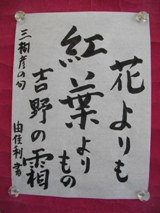 花よりも
紅葉よりもの
吉野の霜
三樹彦の句
由佳利書